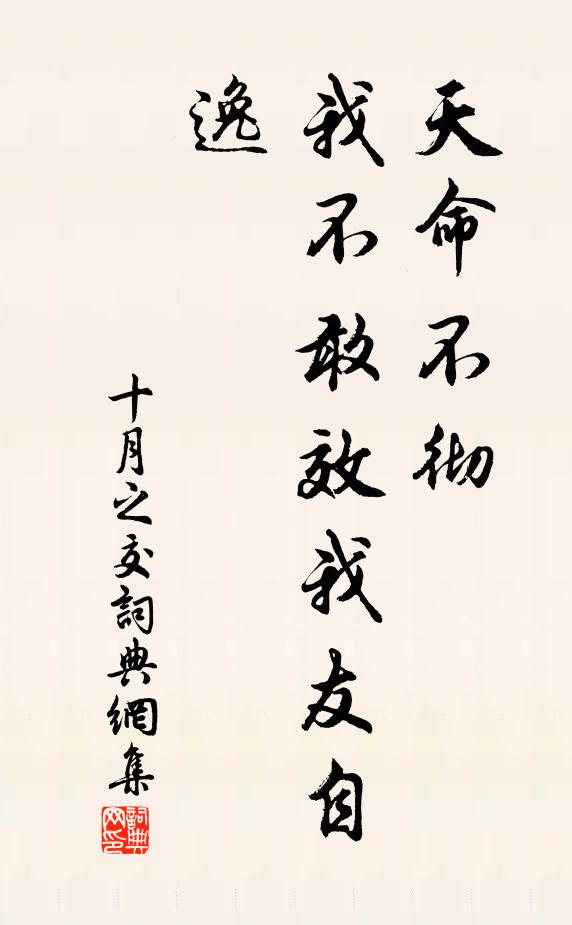 天命不彻
我不敢效我友自
逸
十月之交詞典網集
詞典
网印